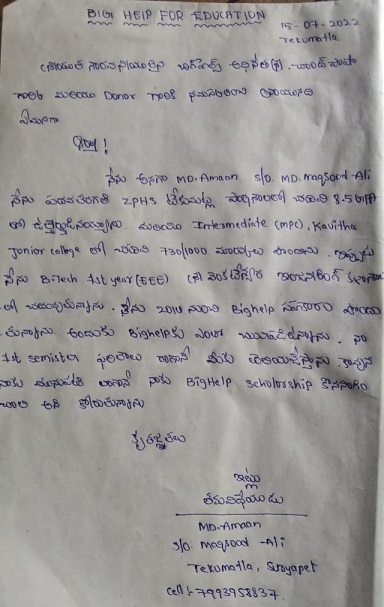 BIG HELP FOR EDUCATION
15-07-2022
Tekumatla.
గౌరవనీయులైన బిగ్‌హెల్ప్ అధినేత చాంద్ పాషా
గారికి మరియు Donor గారికి నమస్కరించి వ్రాయునది
ఏమనగా
నేను అనగా MD.Amaan S/o. MD.maqsood-Ali
నేను పదవతరగతి ZPHS టేకుమట్ల పాఠశాలలో చదివి 8.5 GPA
లో ఉత్తీర్ణుడినయ్యాను. మరియు Intermediate (mpc), Kavitha
Junior college లో చదివి 730/1000 మార్కులు పొందాను. ఇప్పుడు
నేను B-Tech 1st year (EEE) శ్రీ వెంకటేశ్వర ఇంజనీరింగ్ కళాశాల
లో చదువుతున్నాను. నేను నుంచి Bighelp సహకారం పొందు
తున్నాను. అందుకు Bighelpకు ఎంతో నా
1st semister ఫలితాలు రాగానే మీకు తెలియజేస్తాను. కావున
నాకు లాగానే నాకు BigHelp scholorship కొనసాగిం
చాలి అని కోరుతున్నాను
కృతజ్ఞతలు
ఇట్లు
తమవిధేయుడు
MD-Amaan
S/o. maqsood -Ali
Tekumatla, Suryapet
Cell:-7993958837.